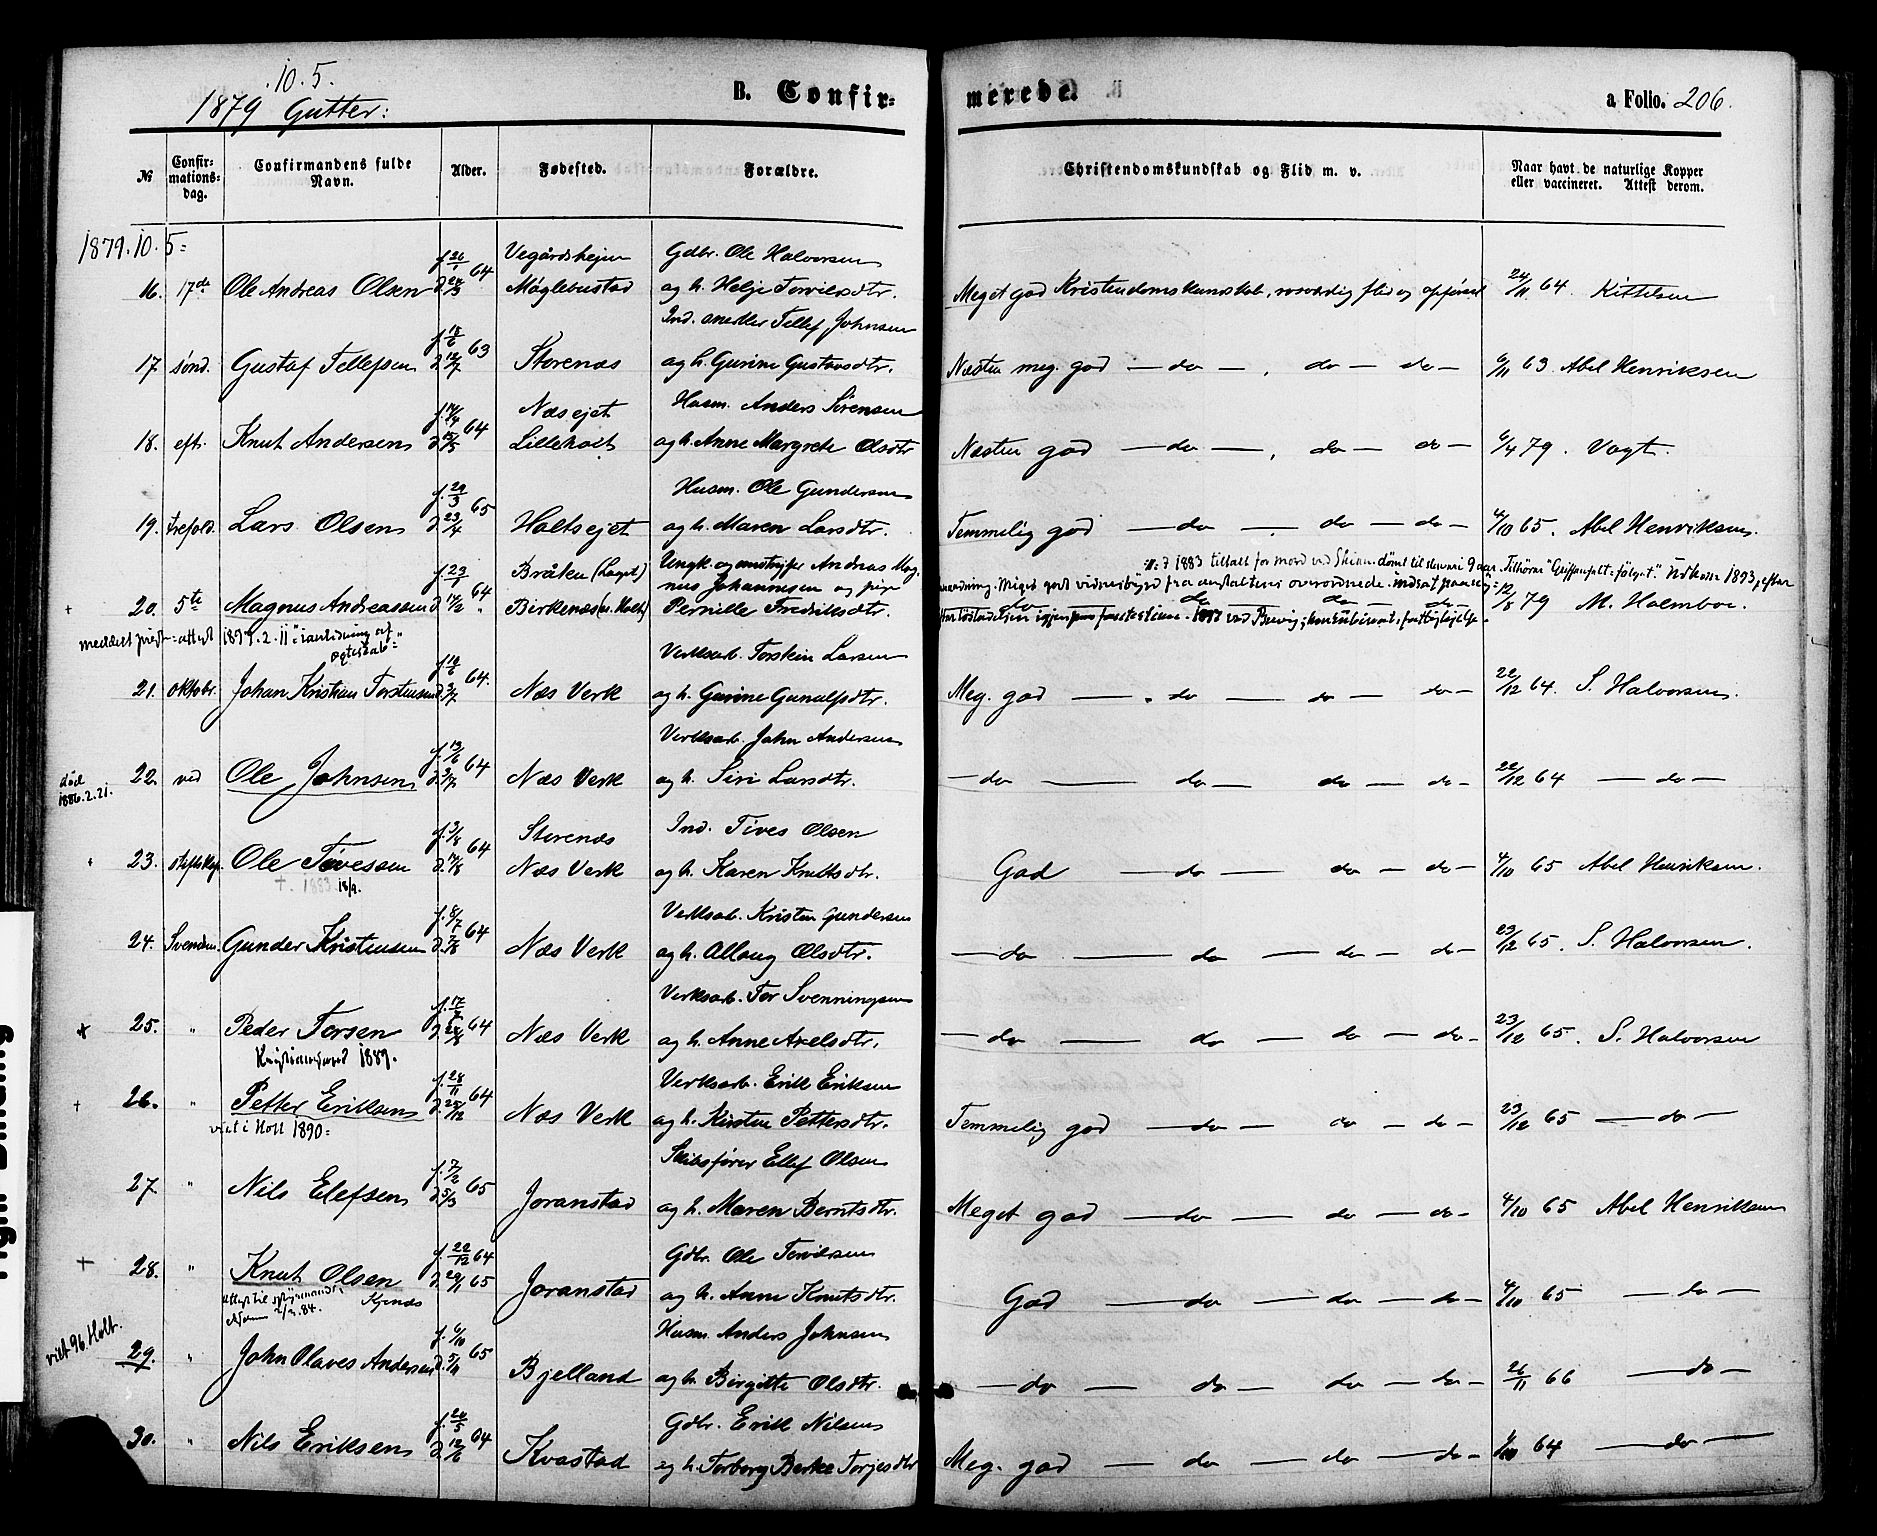 10.5.
1879 Gutter:
B. Confir-
merede.
a Folio. 206.
№
Confir-
mations-
dag.
Confirmandens fulde
Navn.
Alder.
Fødested.
Forældre.
Christendomskundskab og Flid m. v.
Naar havt de naturlige Kopper
eller vaccineret. Attest derom.
1879.10.5=
Vegårdshejen Gdbr. Ole Halvorsen
16. 17de Ole Andreas Olsen 64 Møglebustad og h. Helje Torvilsdtr. Meget god Kristendomskundskab, rosværdig flid og opførsel 24/11 64. Kittelsen
Ind. snedker Tellef Johnsen
17 sønd. Gustaf Tellefsen 63 Storenæs og h. Gurine Gustavsdtr. Næsten meg. god — do — , do — do — 6/11 63 Abel Henriksen
Næsejet Husm. Anders Sörensen
18. eft. Knut Andersen 64 Lilleholt og h. Anne Margrete Olsdtr Næsten god — do — , do — do — 6/4 79. Vogt.
f. 29/3 Husm. Ole Gundersen
19. trefold. Lars Olsen d. 23/4 65 Holtsejet og h. Maren Larsdtr. Temmelig god — do — , do — do — 4/10 65. Abel Henriksen
Bråken (Laget) Ungk. og Andreas Mag-
nus Johannesen og pige
7 1883 tiltalt for mord ved Skien. dømt til slaveri 9 aar. Tilhører "Griffenfelt-følget". Udkom 1893, efter
20. 5te Magnus Andreassen 64 Birkenæs (n. Holt) Pernille Fredriksdtr. 12/8 79 M. Holmboe.
meddelt prest-attest 1899.2.11 i anledning af
egteskab="
Verksarb. Torstein Larsen
21. oktobr. Johan Kristian Torstensen 64. Næs Verk og h. Gurine Gunulfsdtr. Meg. god — do — do — do — 22/12 64. S. Halvorsen.
f. 13/6 Verksarb. John Andersen
død
1886.2.21. 22. ved Ole Johnsen 64 Næs Verk og h. Siri Larsdtr. — do — do — do — do — 22/12 64 — do —
f. 3/8 Storenæs Ind. Tives Olsen
23. stiftskap. Ole Tivessen d. 14/8 64 Næs Verk og h. Karen Knutsdtr. God — do — do — do — 4/10 65 Abel Henriksen.
†. 1883 18/9.
f. 8/7 Verksarb. Kristen Gundersen
24. Svendsen. Gunder Kristensen 64 Næs Verk og h. Allaug Olsdtr. — do — do — do — do — 23/12 65. S. Halvorsen.
Verksarb. Tor Svenningsen
25. " Peder Torsen 64 Næs Verk og h. Anne Axelsdtr. — do — do — do — do — 23/12 65. S. Halvorsen
Kristianssand 1889.
f. 28/11 Verksarb. Erik Eriksen
† 26. " Petter Eriksen d. 25/12 64 Næs Verk og h. Kirsten Pettersdtr. Temmelig god — do — do — do — 23/12 65 — do —
viet i Holt 1890=
f. 7/2 Skibsfører Ellef Olsen
27 " Nils Elefsen d. 5/3 65 Joranstad og h. Maren Berntsdtr. Meget god — do — do — do — 4/10 65 Abel Henriksen
f. 22/12 64 Gdbr. Ole Torvilsen
† 28. " Knut Olsen d. 29/1 65 Joranstad og h. Anne Knutsdtr. God — do — do — do — 4/10 65 — do —
84. Kjenæs
viet 96. Holt.
f. 6/10 Husm. Anders Johnsen
29. " John Olaves Andersen d. 5/11 65 Bjelland og h. Birgitte Olsdtr. — do — do — do — do — 26/11 66 — do —
Gdbr. Erik Nilsen
30. " Nils Eriksen 64 Kvastad og h. Torborg Berte Torjesdtr Meg. god — do — do — do — 64 — do —